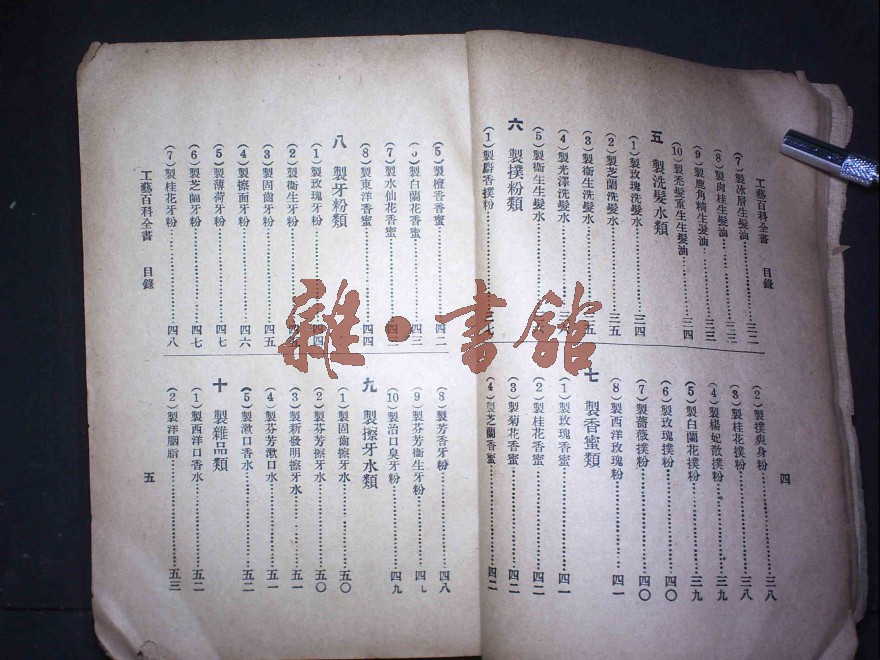 工藝百科全書 目錄
四
(7)製冰層生髮油……三二
(8)製肉桂生髮油……三三
(9)製鹿角精生髮油……三三
(10)製禿髮重生生髮油……三四
五 製洗髮水類
(1)製玫瑰洗髮水……三四
(2)製芝蘭洗髮水……三五
(3)製衛生洗髮水……三五
(4)製光澤洗髮水
(5)製衛生生髮水
六 製撲粉類
(1)製麝香撲粉
(2)製撲爽身粉……三八
(3)製桂花撲粉……三八
(4)製楊妃散撲粉……三九
(5)製白蘭花撲粉……三九
(6)製玫瑰撲粉……四〇
(7)製薔薇撲粉……四〇
(8)製西洋玫瑰粉……四一
七 製香蜜類
(1)製玫瑰香蜜……四一
(2)製桂花香蜜……四二
(3)製菊花香蜜……四二
(4)製芝蘭香蜜……四二
(5)製檀香香蜜……四二
製白蘭花香蜜……四三
(7)製水仙花香蜜……四
(8)製東洋香蜜……四四
八 製牙粉類
(1)製玫瑰牙粉……四四
(2)製衛生牙粉……四五
(3)製固齒牙粉……四五
(4)製擦面牙粉……四六
(5)製薄荷牙粉……四七
(6)製芝蘭牙粉……四七
(7)製桂花牙粉……四八
(8)製芳香牙粉……四八
(9)製芬芳衛生牙粉……四九
(10)製治口臭牙粉……四九
九 製擦牙水類
(1)製固齒擦牙水……五〇
(2)製芬芳擦牙水……五〇
(3)製新發明擦牙水……五一
(4)製芬芳漱口水……五一
(5)製漱口香水……五二
十 製雜品類
(1)製西洋口香水……五二
(2)製洋胭脂……五三
工藝百科全書 目錄
五
雜·書館